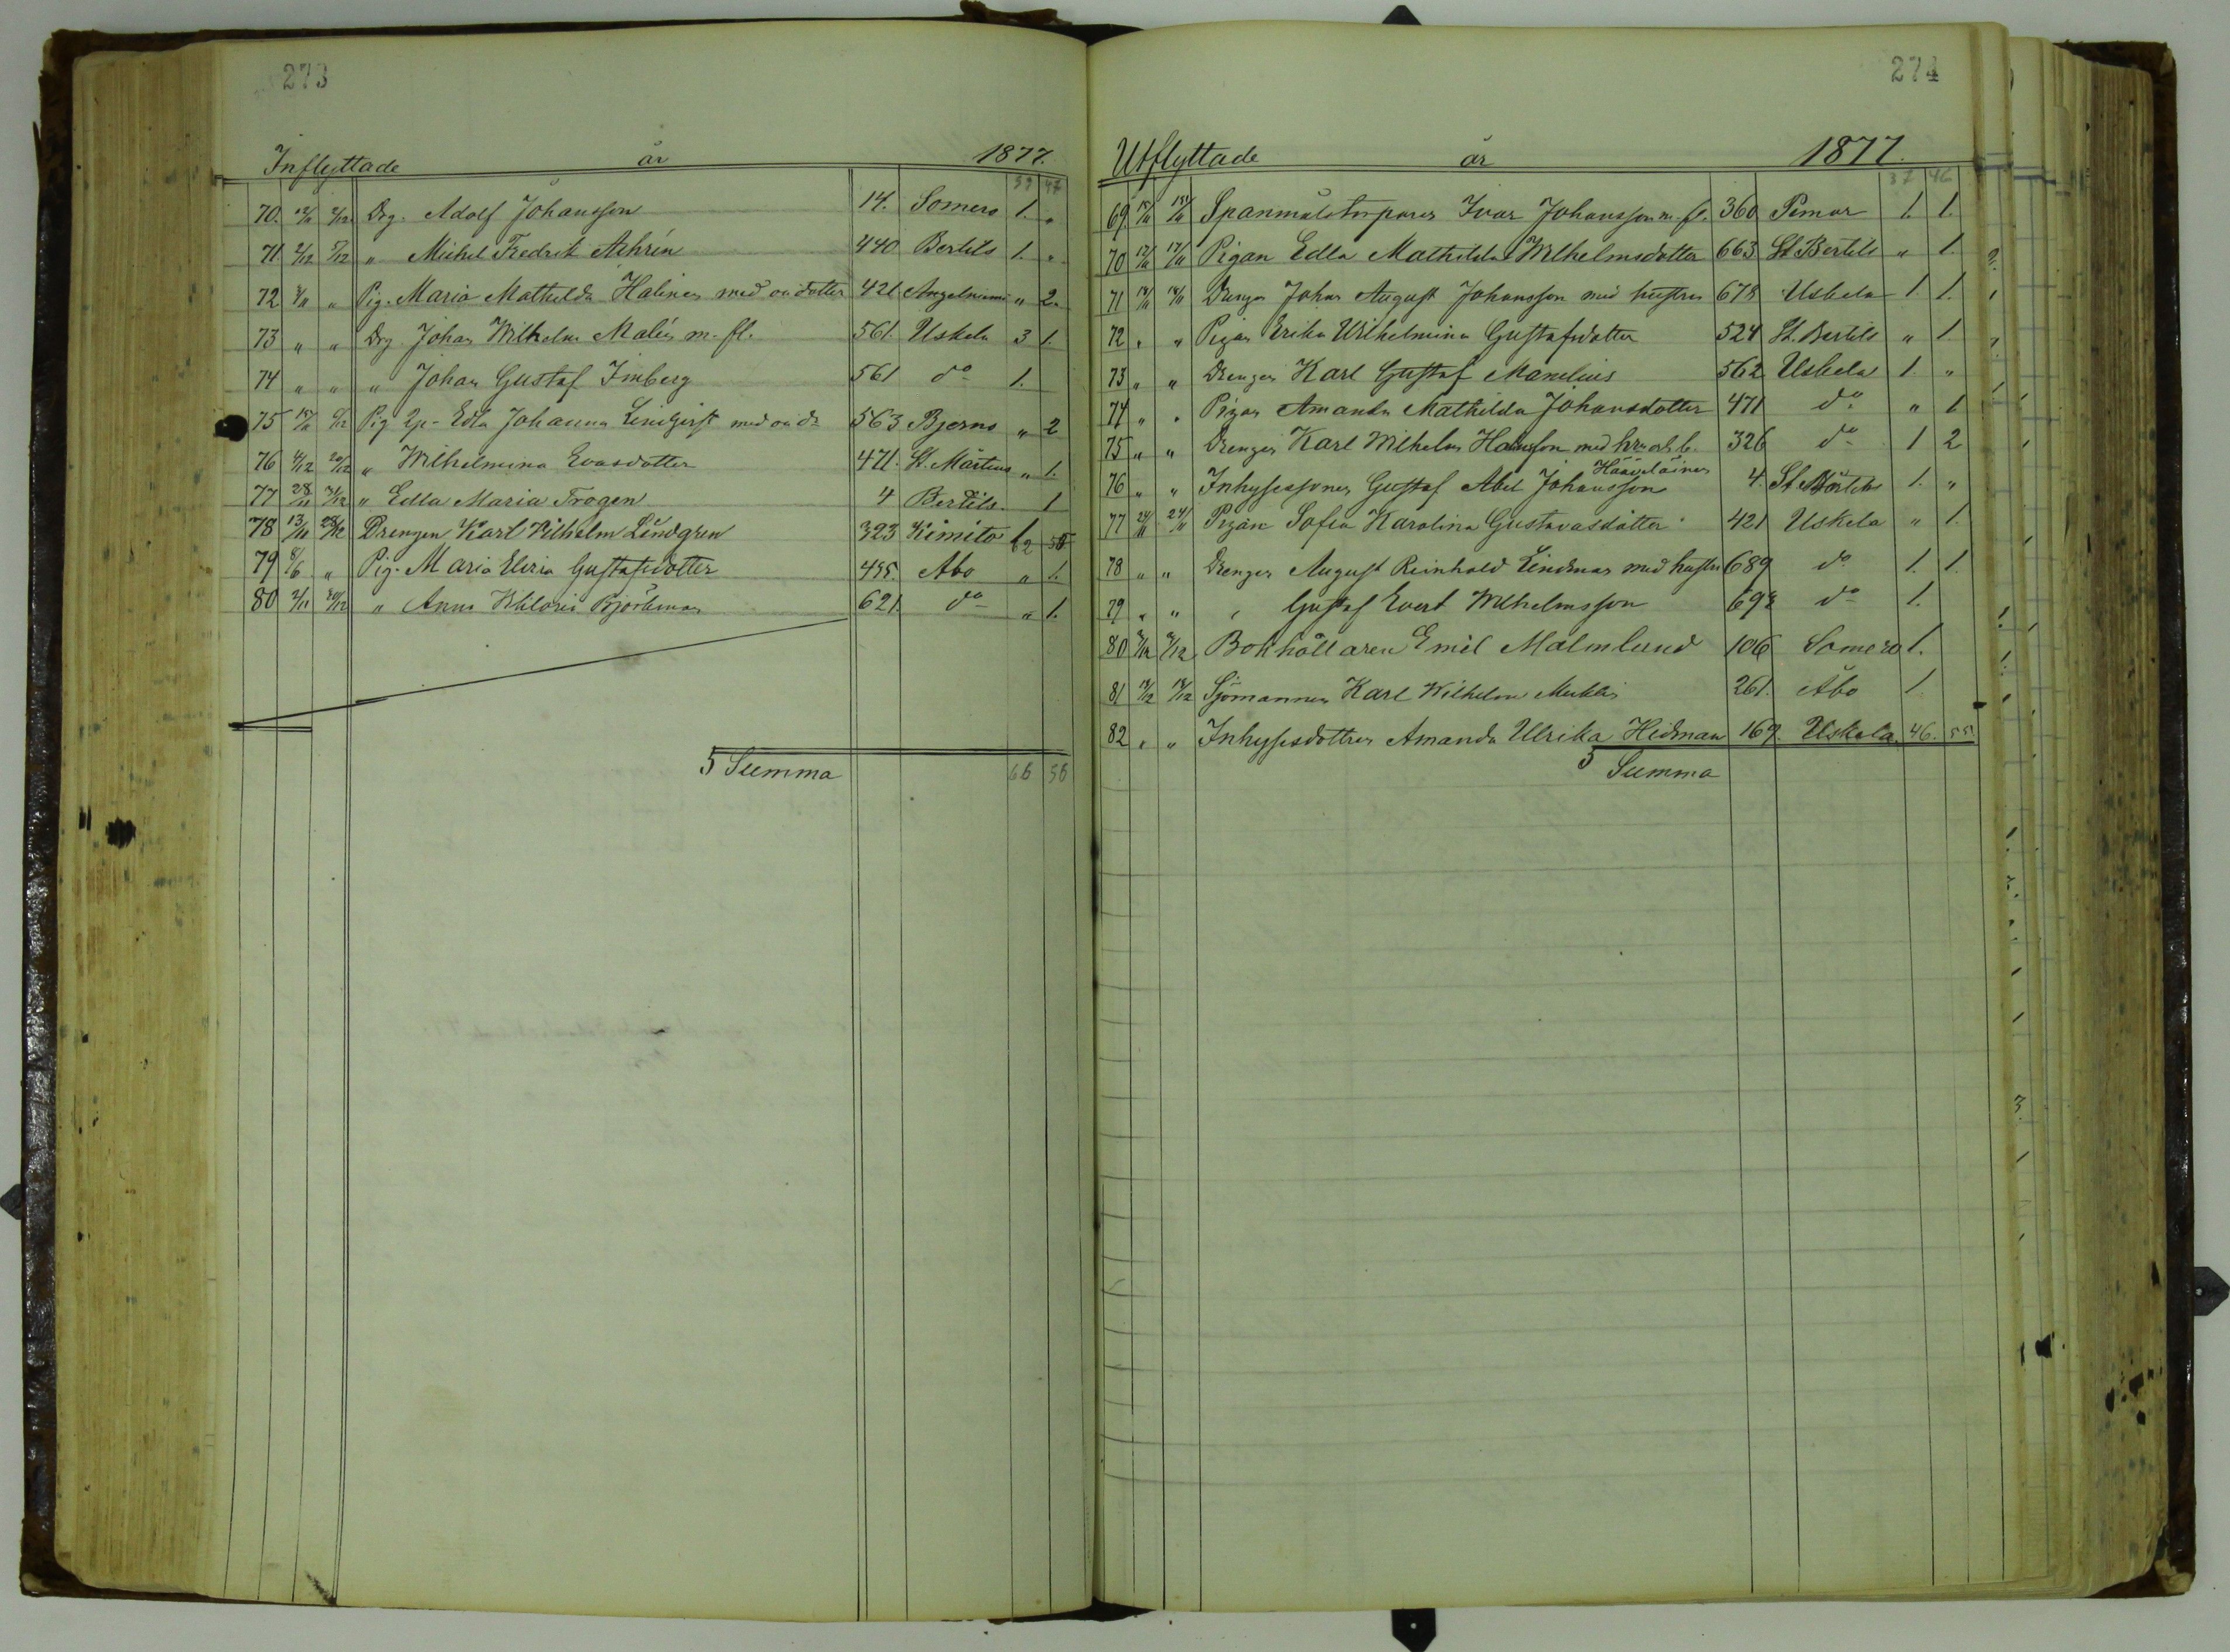 273
Inflyttade år 1877.
70. 2/12 Drg. Adolf Johansson 14. Somero 1. "
71 2/12 5/12 " Michel Fredrik Achrén 440 Bertils 1. "
72 " Pig. Maria Mathilda Halinen med oä dotter 421 Angelniemi " 2
73 " " Drg Johan Wilhelm Malén m. fl. 561. Uskela 3 1.
74 " " " Johan Gustaf Imberg 561 do 1.
75 Pig Edla Johanna Lindqvist med oä dr 563 Bjerno " 2
76 20/12 " Wilhelmina Evasdotter 471. St. Mårtens " 1.
77 28/11 31/12 " Edla Maria Trogen 4 Bertils. 1
78 13/10 28/12 Drengen Karl Vilhelm Lindgren 323 Kimito 1
79 8/6 " Pig. Maria Gustafsdotter 495. Abo " 1.
80 2/11 30/12 " Anna Björkman 621. do " 1.
Summa 66 56
274
Utflyttade år 1877.
37 46
69. Spanmålstorparen Ivar Johansson m. fl. 360 Pemar 1. 1.
70 17/11 Pigan Edla Mathilda Wilhelmsdotter 663 St Bertils " 1.
71 Drengen Johan August Johansson med hustru 678 Uskela 1. 1.
72 " " Pigan Erika Wilhelmina Gustafsdotter 524 St. Bertils " 1.
73 " " Drengen Karl Gustaf Manelius 562 Uskela 1. "
74 " " Pigan Amanda Mathilda Johansdotter 471 do " 1
75 " " Drengen Karl Wilhelm Hansson med hru o. b. 326 do 1 2
Häävelainen
76 " " Inhysessonen Gustaf Abel Johansson 4. St 1. "
77 24/11 24/11 Pigan Sofia Karolina Gustavasdotter 421 Uskela " 1.
78 " " Drengen August Reinhold Lindman med hustru 689 do 1. 1.
79 " " " Gustaf Evert Wilhelmsson 698 do 1.
80 Bokhållaren Emil Malmlund 106 Somero 1.
81 Sjömannen Karl Wilhelm 261. Åbo 1
82 " " Inhysesdottren Amanda Ulrika Hidman 169. Uskela 46. 55
Summa